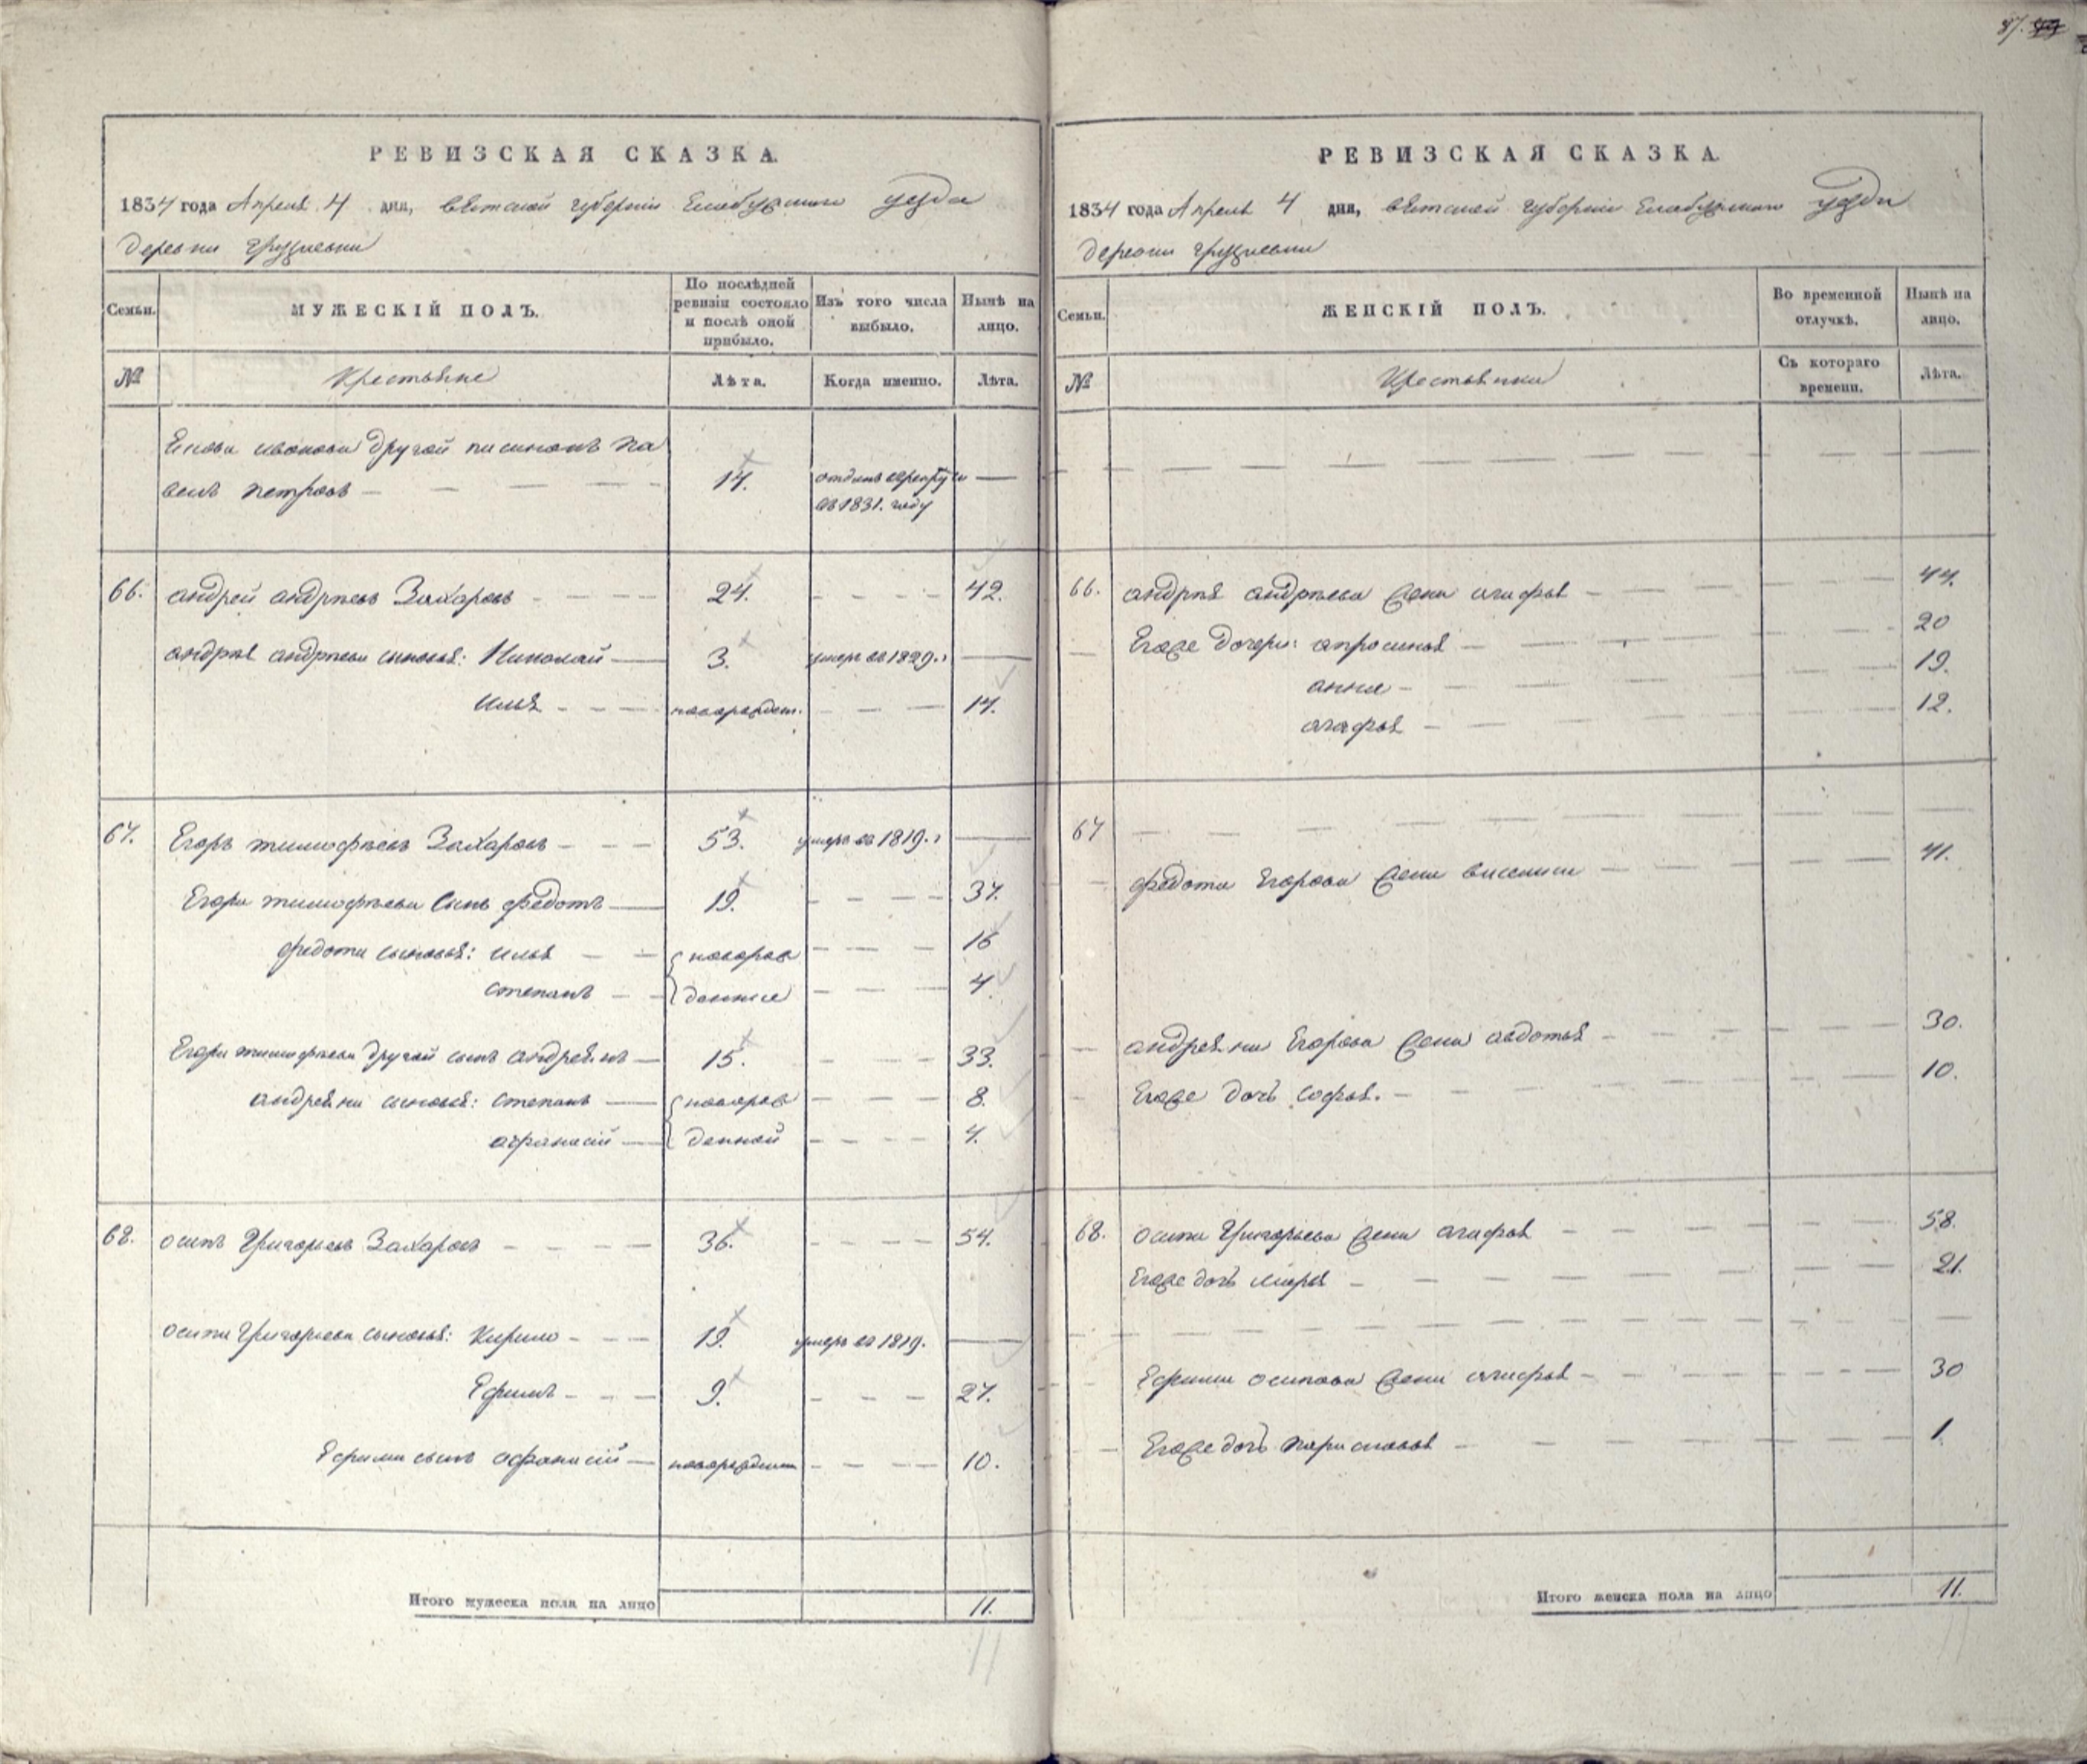 87.
РЕВИЗСКАЯ СКАЗКА.
1834 года Апреля 4 дня, вятской губернии Елабужскаго уезда
деревни
Семьи. МУЖЕСКІЙ ПОЛЪ. По послѣдней ревизіи состояло и послѣ оной прибыло. Изъ того числа выбыло. Нынѣ на лицо.
№ Крестьяне Лѣта. Когда именно. Лѣта.
иванова другой пасынокъ Па
велъ петровъ 14. отданъ в рекруты —
въ 1831. году
66. андрей андреевъ Захаровъ 24. 42.
андрея андреева сыновья: Николай 3. умеръ въ 1829. г —
илья новорожден. 14.
67. Егоръ тимофеевъ Захаровъ 53. умеръ въ 1819. г —
Егора тимофеева сынъ федотъ 19. 37.
федота сыновья: илья новорож 16
степанъ денные 4.
Егора тимофеева другой сынъ андреянъ 15. 33.
андреяна сыновья: степанъ новорож 8.
афанасій денной 4.
68. осипъ Григорьевъ Захаровъ 36. 54.
осипа Григорьева сыновья: Кирило 19. умеръ въ 1819. —
Ефимъ 9. 27.
Ефима сынъ афанасій новорожден 10.
Итого мужеска пола на лицо 11.
11
РЕВИЗСКАЯ СКАЗКА.
1834 года Апреля 4 дня, вятской губернии Елабужскаго уезда
деревни
Семьи. ЖЕНСКІЙ ПОЛЪ. Во временной отлучкѣ. Нынѣ на лицо.
№ Крестьянки Съ котораго времени. Лѣта.
66. андрея андреева жена агафья 44.
Егоже дочери: апросинья 20
анна 19.
агафья 12.
67
федота Егорова жена василиса 41.
андреяна Егорова жена авдотья 30.
Егоже дочь софья. 10.
68. осипа Григорьева жена агафья 58.
Егоже дочь марья 21.
Ефима осипова жена агафья 30
Егоже дочь парасковья 1.
Итого женска пола на лицо 11.